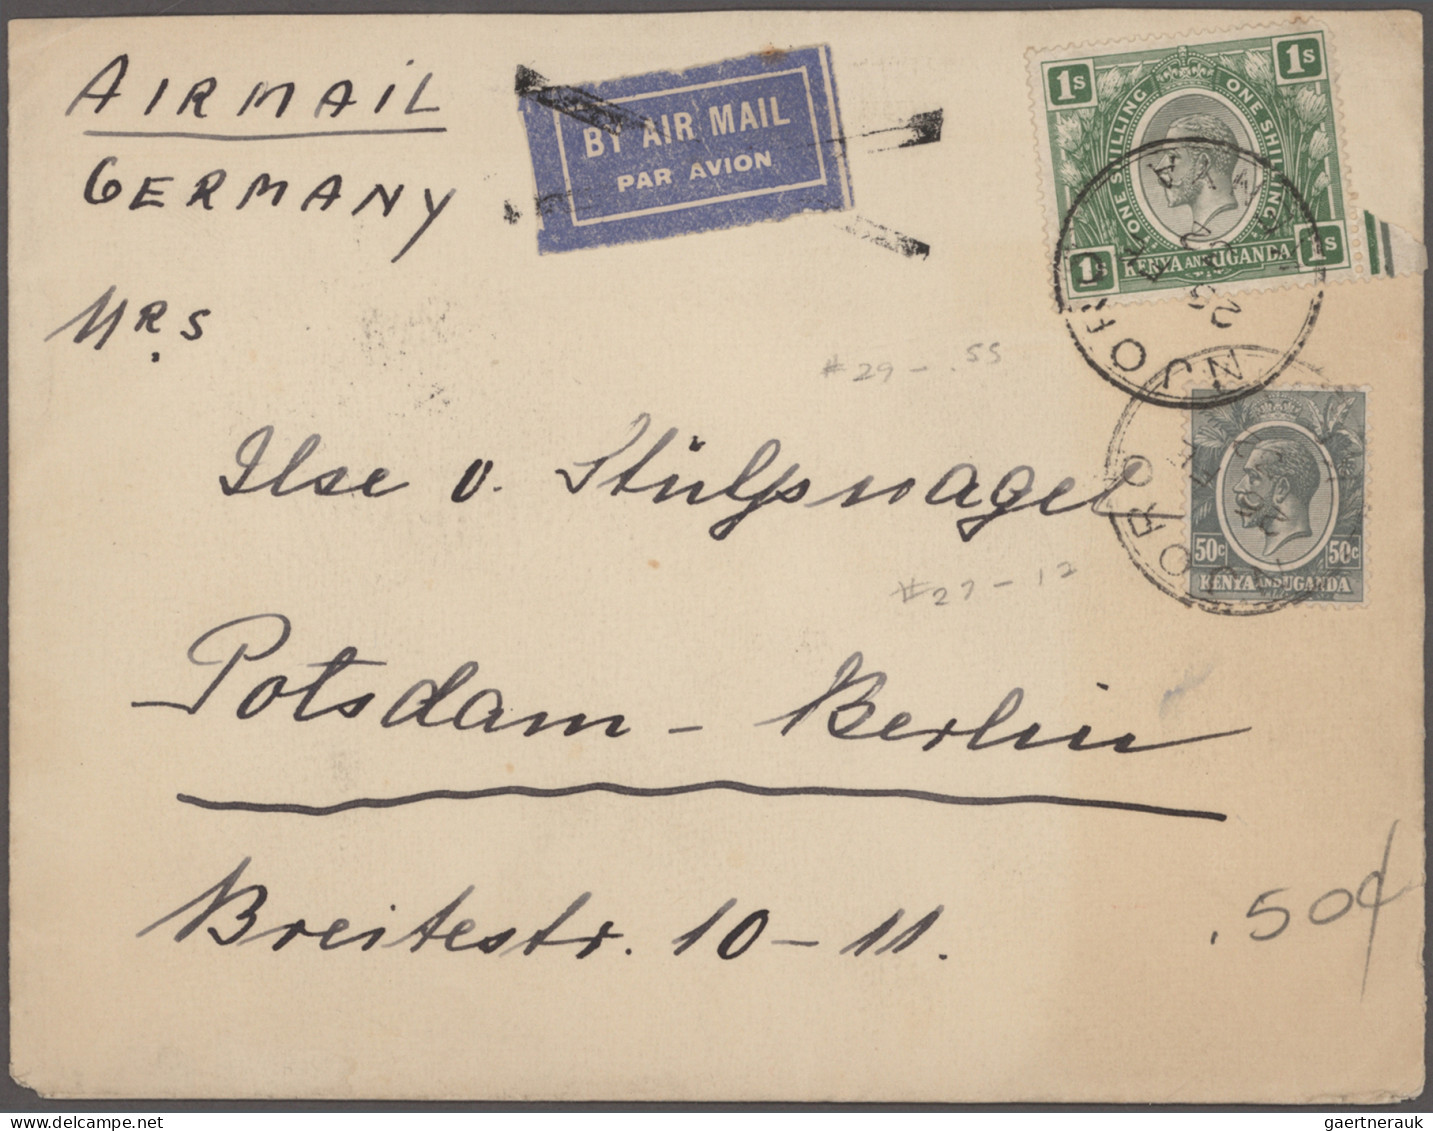 AIRMAIL
GERMANY
MRS
BY AIR MAIL
PAR AVION
1s 1s
ONE SHILLING ONE SHILLING
1s KENYA AND UGANDA 1s
NJORO
KENYA
23
#29 - .55
Ilse v. Stülpnagel
50c 50c
KENYA AND UGANDA
#27 - 12
Potsdam - Berlin
Breitestr. 10 - 11.
.50¢
gaertnerauk